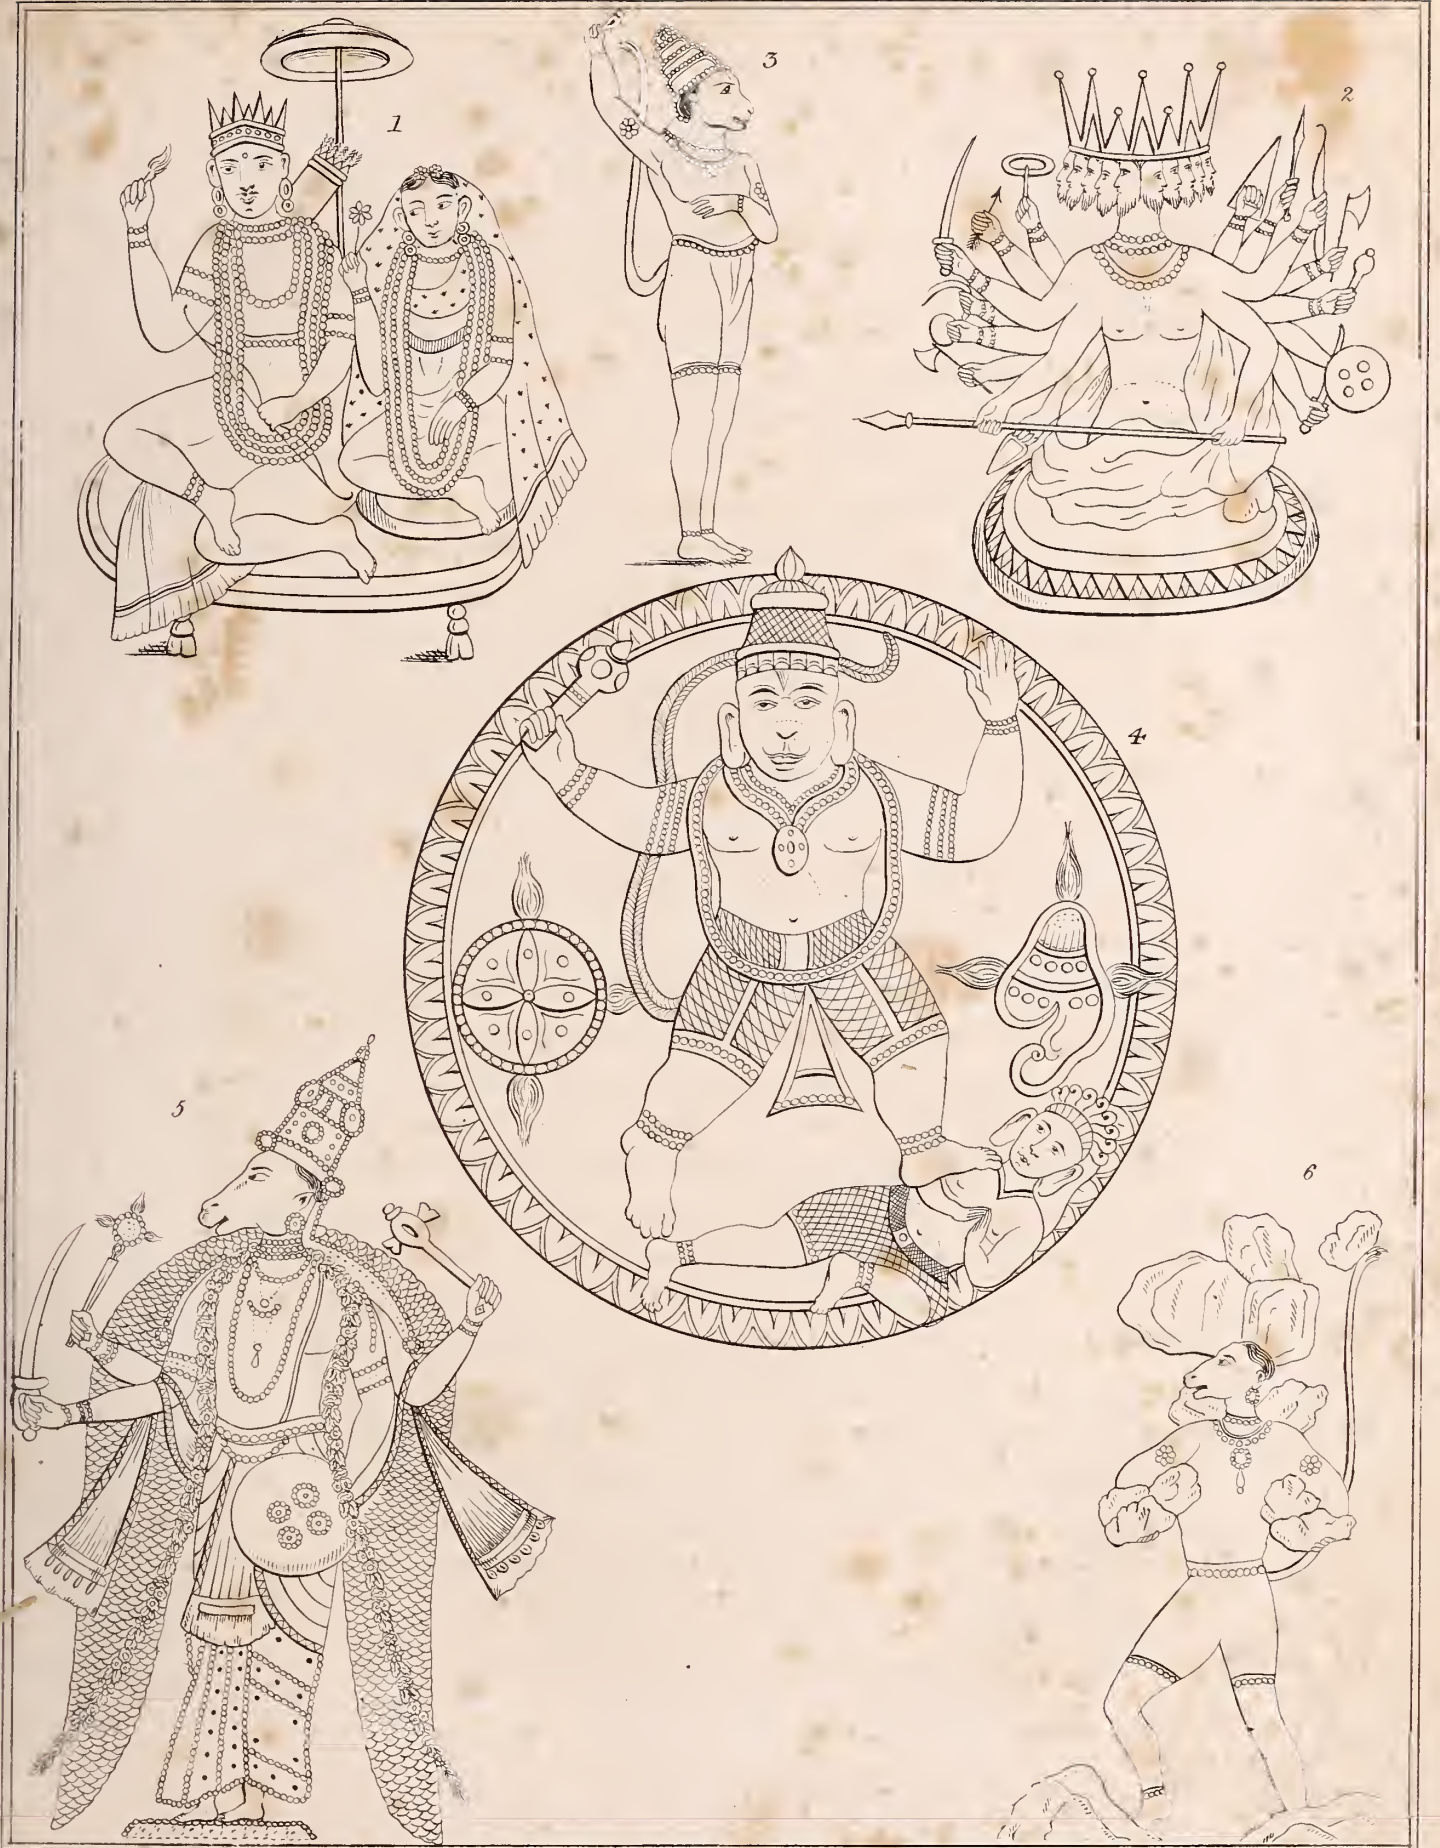 1
3
2
4
5
6